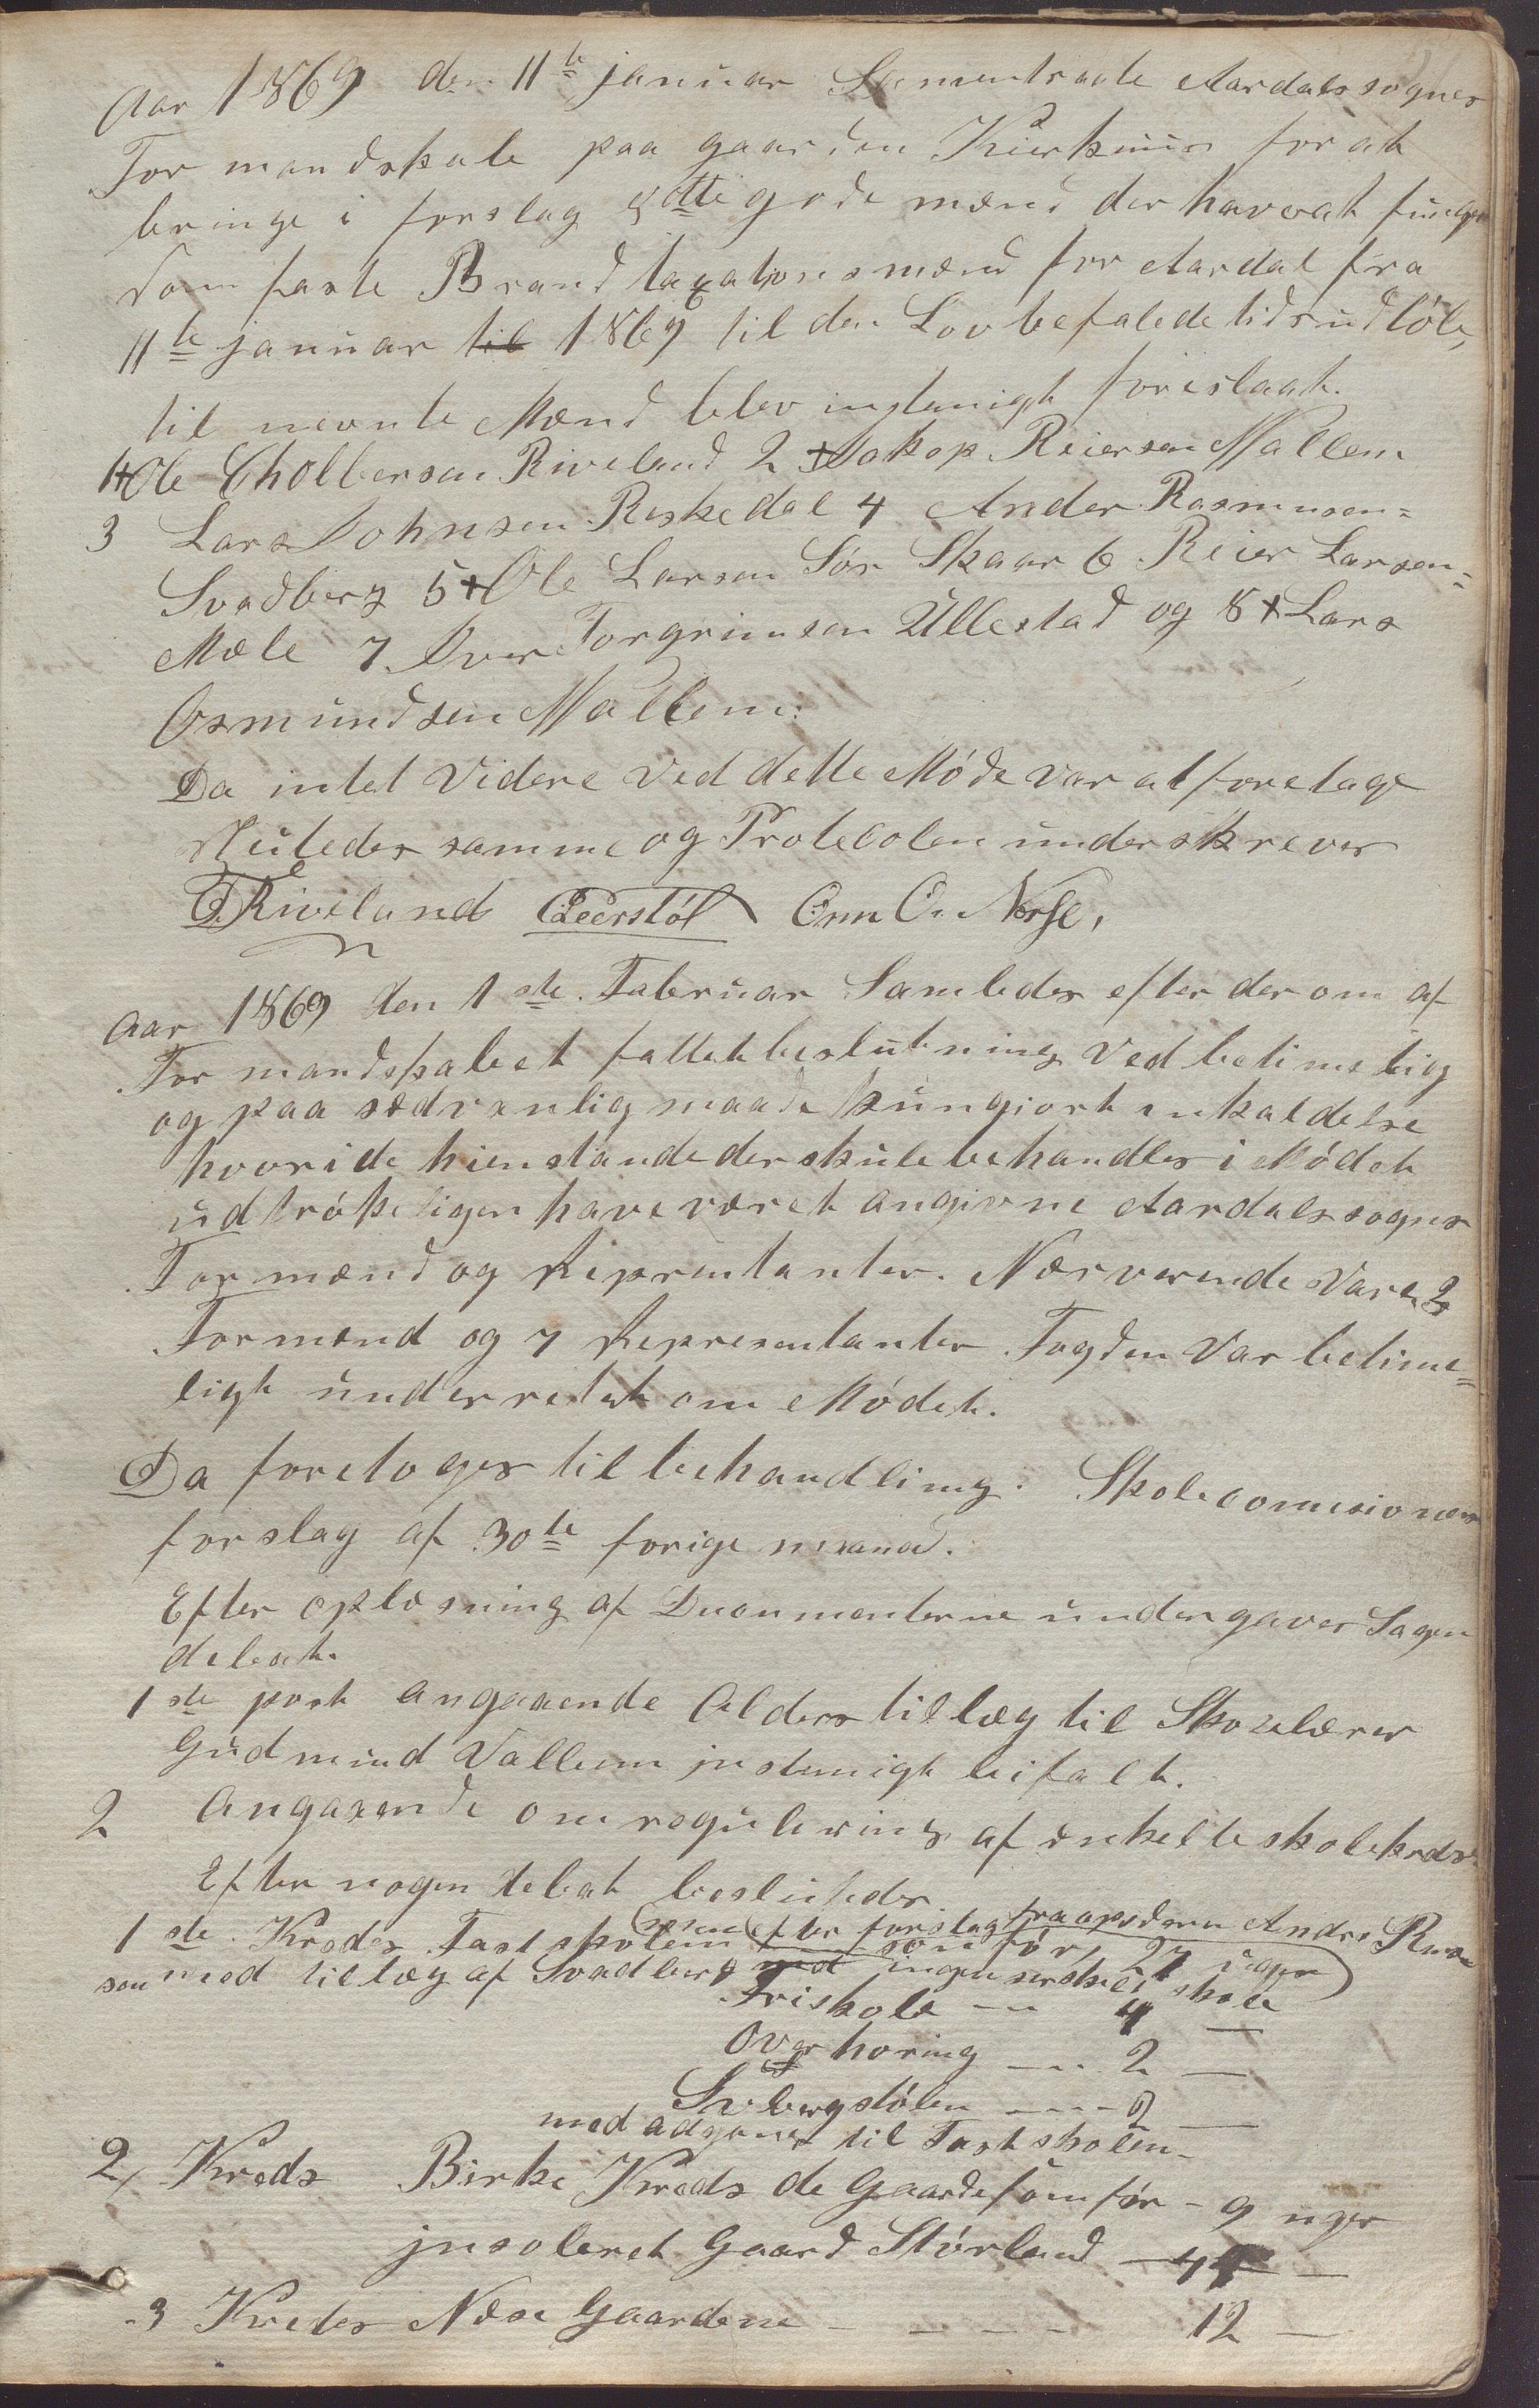 Aar 1869 den 11te januar Samentraate Aardals sognes
For mandskab paa gaarden Kirkhuus for at
bringe i forslag 8 otte gode mænd der haver at funger
som faste Brand taxations mænd for Aardal fra
11te januar til 1869 til den Lov befalede tids udløb,
til nevnte Mænd blev instemigt foreslaat.
1+ Ole Tholbersen Riveland 2 + Jakop Reiersen Vallem
3 Lars Johnsen Reskedal 4 Ander Rasmusen=
Svadberg 5 + Ole Larsen Sør Skaar 6 Reier Larsen=
Mæle 7. Iver Torgrimsen Ullestad og 8 + Lars
Osmundsen Vallem.
Da intet Videre Ved dette Møde var at foretage
Slutedes samme og Protecolen underskreves
Riveland Onn On Nessе,
Aar 1869 den 1ste Februar Samledes efter derom af
For mandskabet fattet beslutning Ved betimelig
og paa sædvanlig maade kungiort inkaldelse
hvori de hienstande der skule behandles i Mødet
udtrøkeligen have været angivne Aardals sogns
Formænd og Reprentanter. Nærverende Vare 2
Formænd og 7 Representanter Fogden Var betime=
ligt underretet om Mødet.
Da foretoges til behandling. Skolecomisionens
forslag af 30te forige maaned.
Efter oplæsning af Documenterne undergaves Sagen
debat.
1ste post angaaende Alders tillæg til Skolelærer
Gudmund Vallem instemigt bifalt.
2 Angaaende omregulering af enkelte skolekreds
Efter nogen debat besluttedes.
1ste Kreds Fast skolen efter forslag fra opsderen Andrs Rasmu
sen med tillæg af Svadberg som før, 27 uger
med ingen serskelt skole
Friskole — " 4 —
Over horing — " 2 —
Svbergstølen — " — 2 —
med adgang til Fast skolen
2, Kreds Birke Kreds de Gaarde som før - 9 uger
insoleret Gaard Størland — 4 —
3 Kredes Næse Gaardene - - - - 12 —